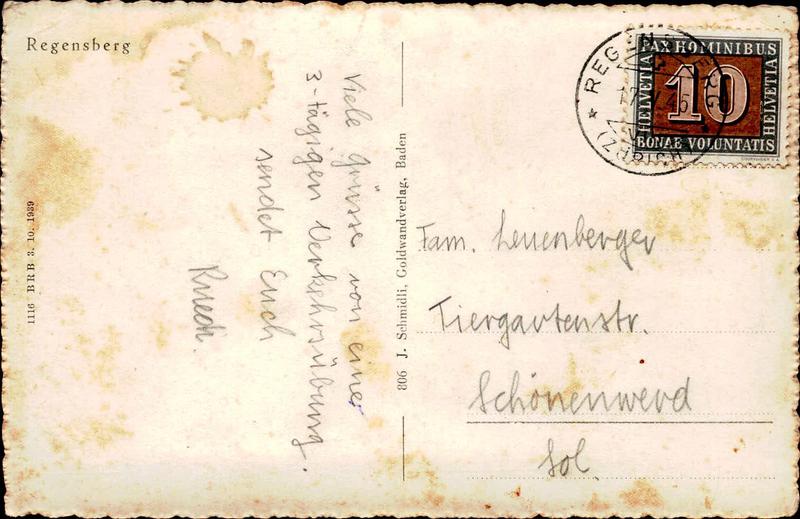 Regensberg
1116 BRB 3. 10. 1939
Viele Grüsse von einer
3-tägigen Verkehrsübung.
sendet Euch
Ruedi.
806 J. Schmidli, Goldwandverlag, Baden
PAX HOMINIBUS
HELVETIA
10
HELVETIA
BONAE VOLUNTATIS
REGENSBERG
(ZÜRICH)
Fam. Leuenberger
Tiergartenstr.
Schönenwerd
Sol.